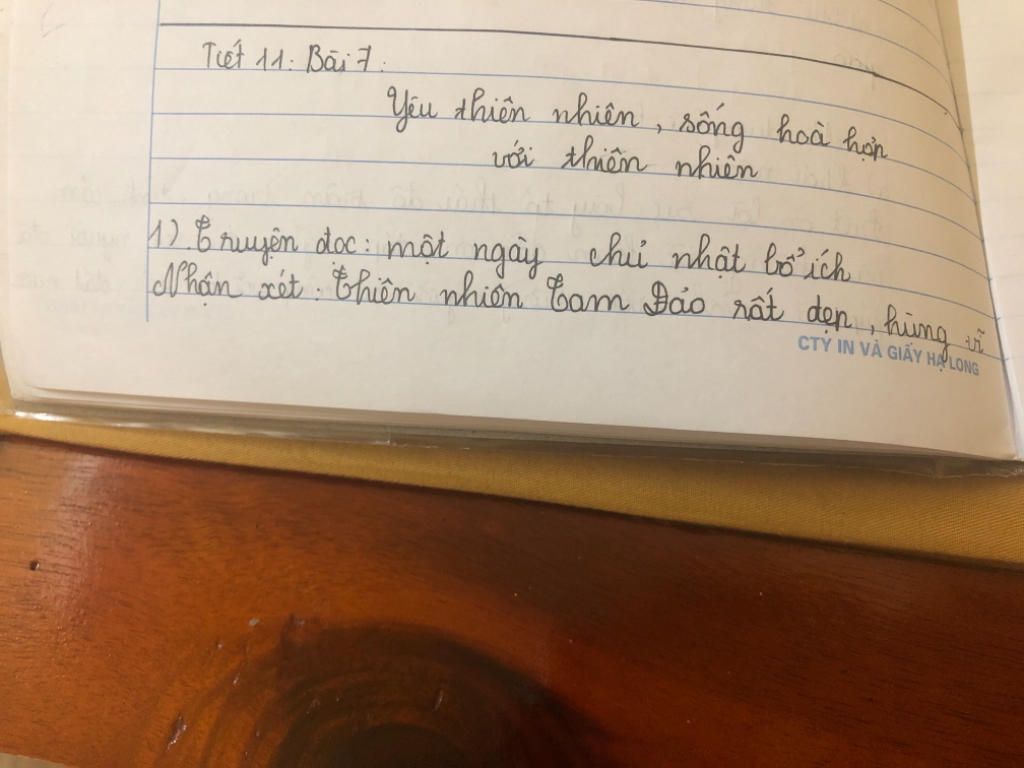 Tiết 11: Bài 7:
Yêu thiên nhiên, sống hoà hợp
với thiên nhiên
1) Truyện đọc: một ngày chủ nhật bổ ích
Nhận xét: Thiên nhiên Tam Đảo rất đẹp, hùng vĩ
CTY IN VÀ GIẤY HẠ LONG